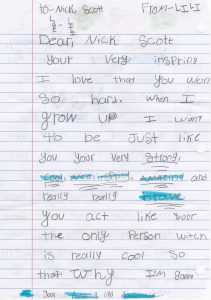 to-Nick, Scott From-LILI
Dear, Nick Scott
Your very inspring
I love that you work
So hard. when I
grow up I want
to be Just like
you your very strong,
Cool, and
really really
you act like Your
the only Person witch
is really cool So
that Why I'm gonna
your and